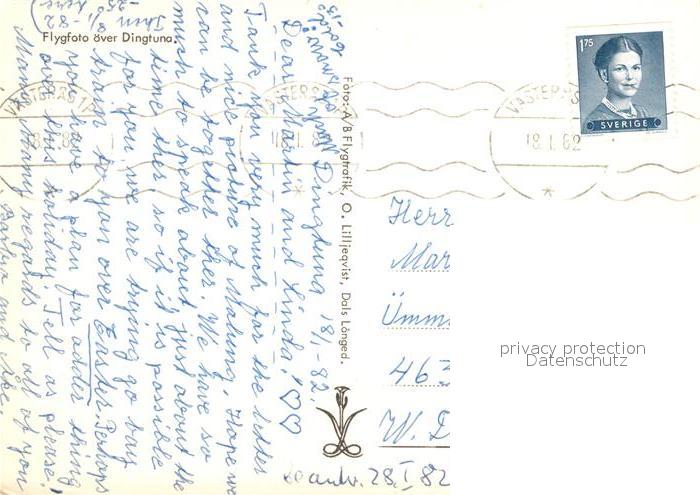 Flygfoto över Dingtuna.
Dingtuna 18/1-82.
Dear Martin and Linda! ♡♡
Tank you very much for the letter
and nice picture of Malung. Hope we
can be together ther. We have so
much to speak about. Just about the
time ther so if it is possible
for you we are trying go bay
train to you over Easter. Perhaps
you have a plan for adder thing
over this holiday. Tell as please!
Many, many regards to all of you
Barbro and Åke.
Foto: A/B Flygtrafik, O. Lilljeqvist, Dals Långed.
1.75
SVERIGE
VÄSTERÅS 1
18.1.82
VÄSTERÅS
18.1.82
Herr
Mar
Ümm
463
W. D
beantw. 28.I 82
privacy protection
Datenschutz